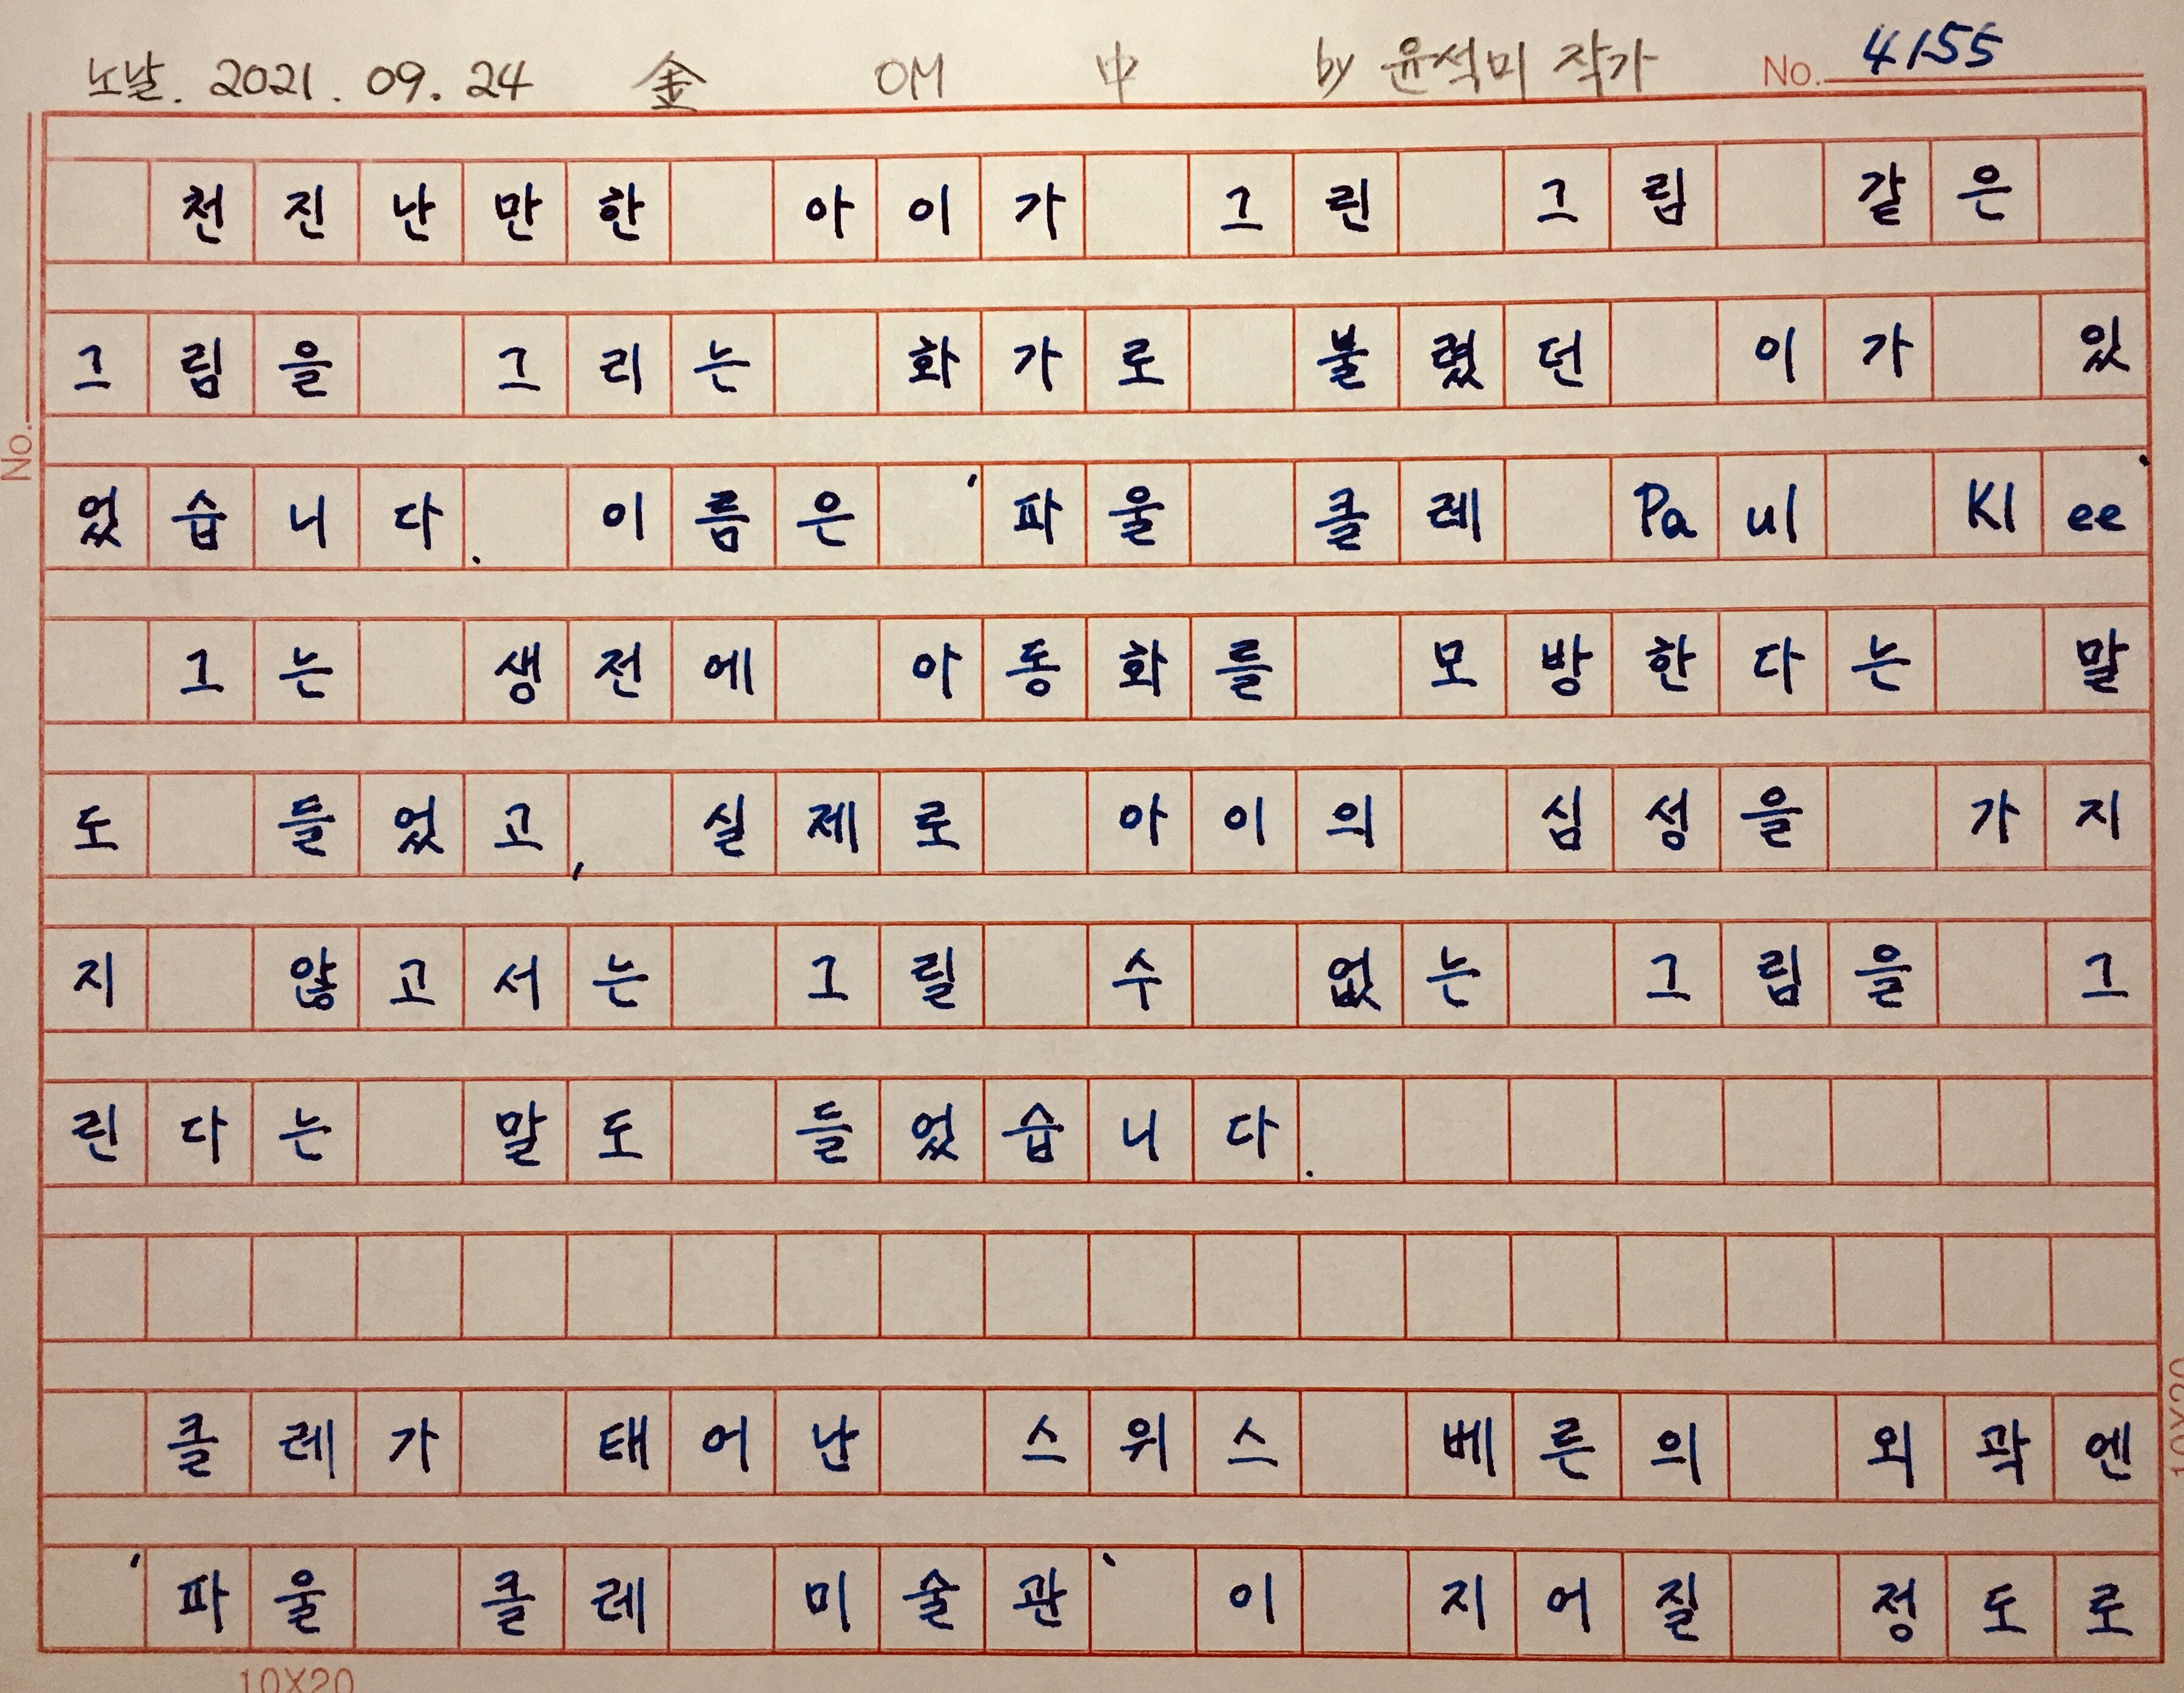 노날. 2021. 09. 24 金 OM 中 by 윤석미 작가 No. 4155
천진난만한 아이가 그린 그림 같은
그림을 그리는 화가로 불렸던 이가 있
었습니다. 이름은 '파울 클레 Paul Klee'
그는 생전에 아동화를 모방한다는 말
도 들었고, 실제로 아이의 심성을 가지
지 않고서는 그릴 수 없는 그림을 그
린다는 말도 들었습니다.
클레가 태어난 스위스 베른의 외곽엔
'파울 클레 미술관'이 지어질 정도로
No.
10X20
10X20